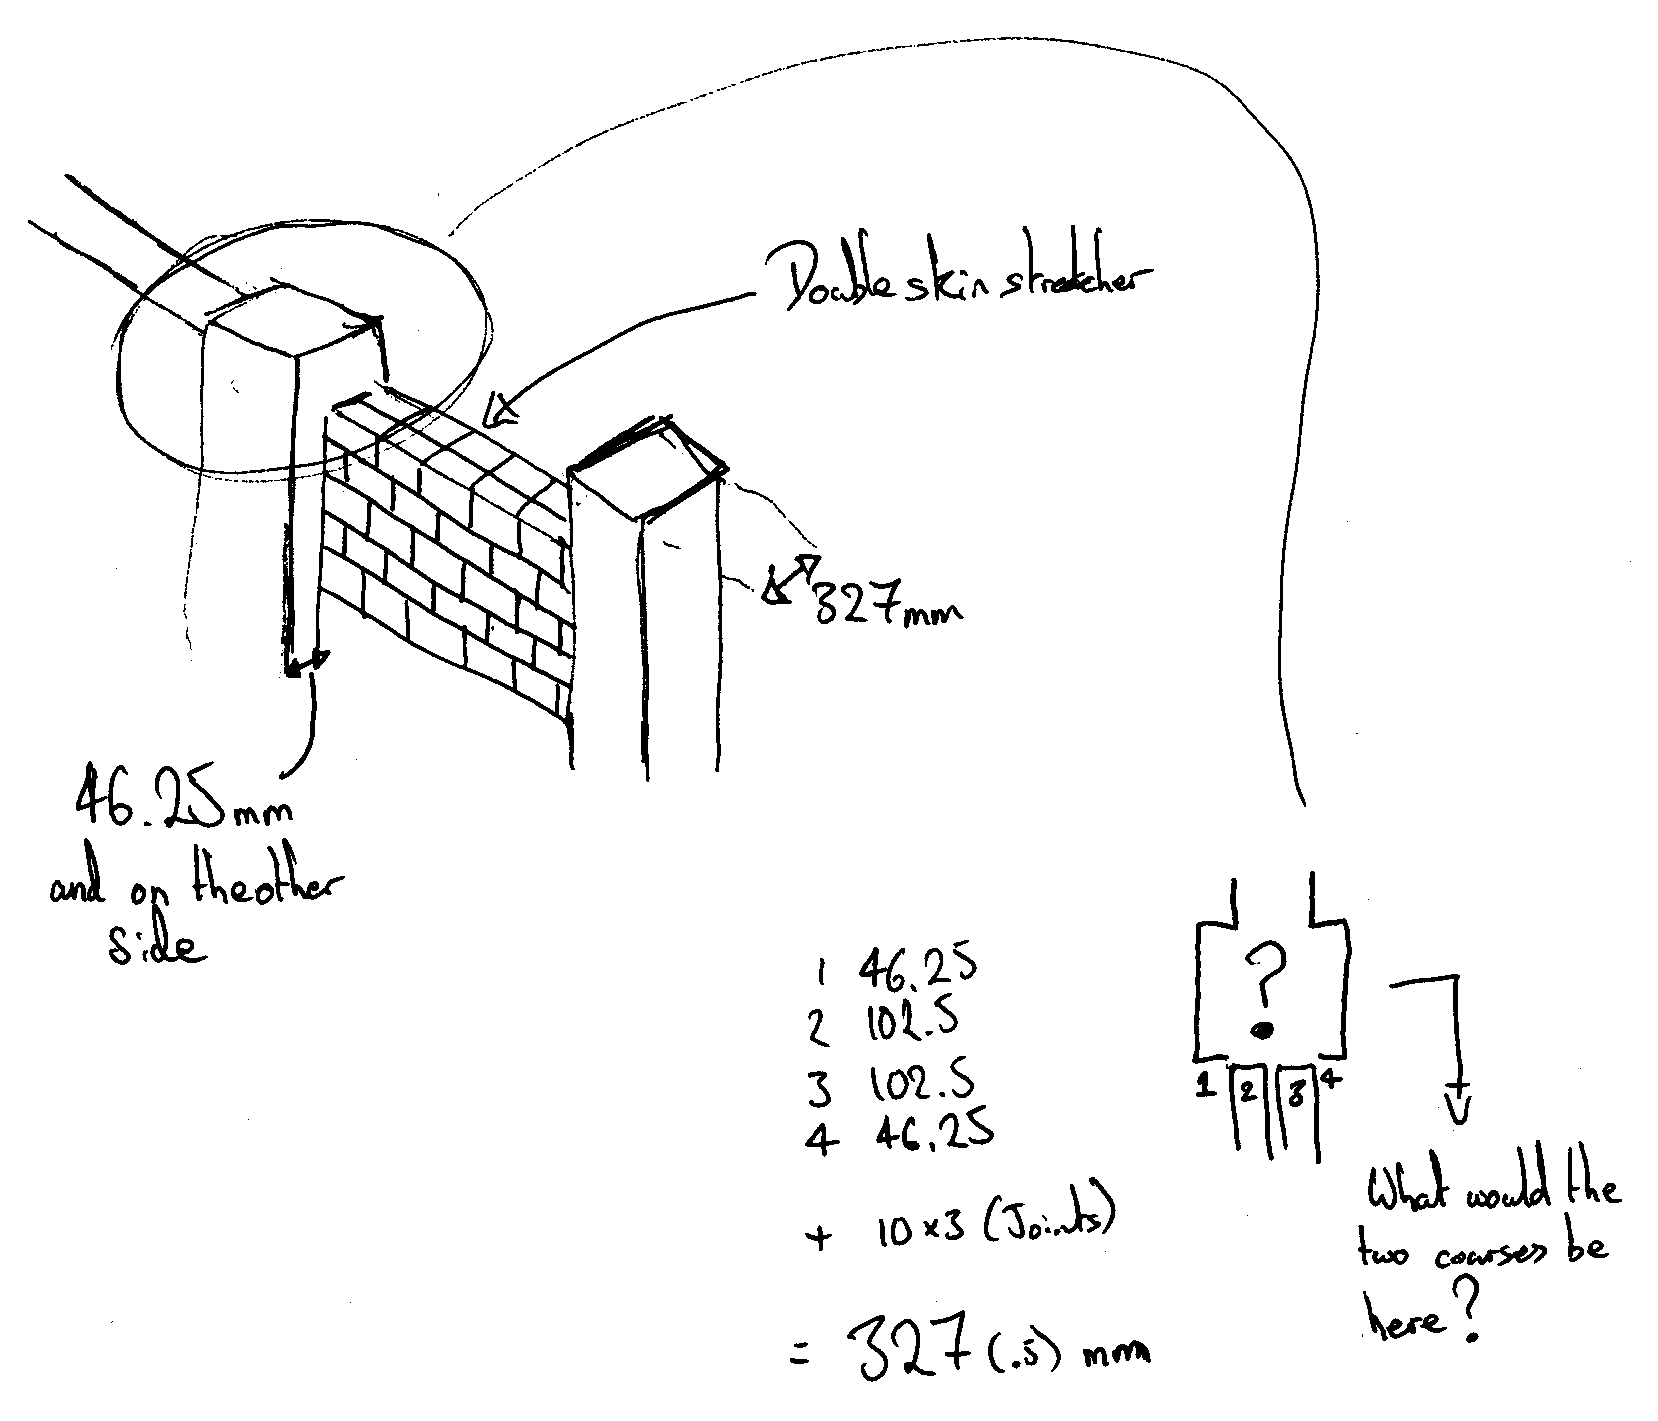 Double skin stretcher
327mm
46.25mm
and on the other
side
1 46.25
2 102.5
3 102.5
4 46.25
+ 10 x 3 (Joints)
= 327 (.5) mm
?
1 2 3 4
What would the
two courses be
here?